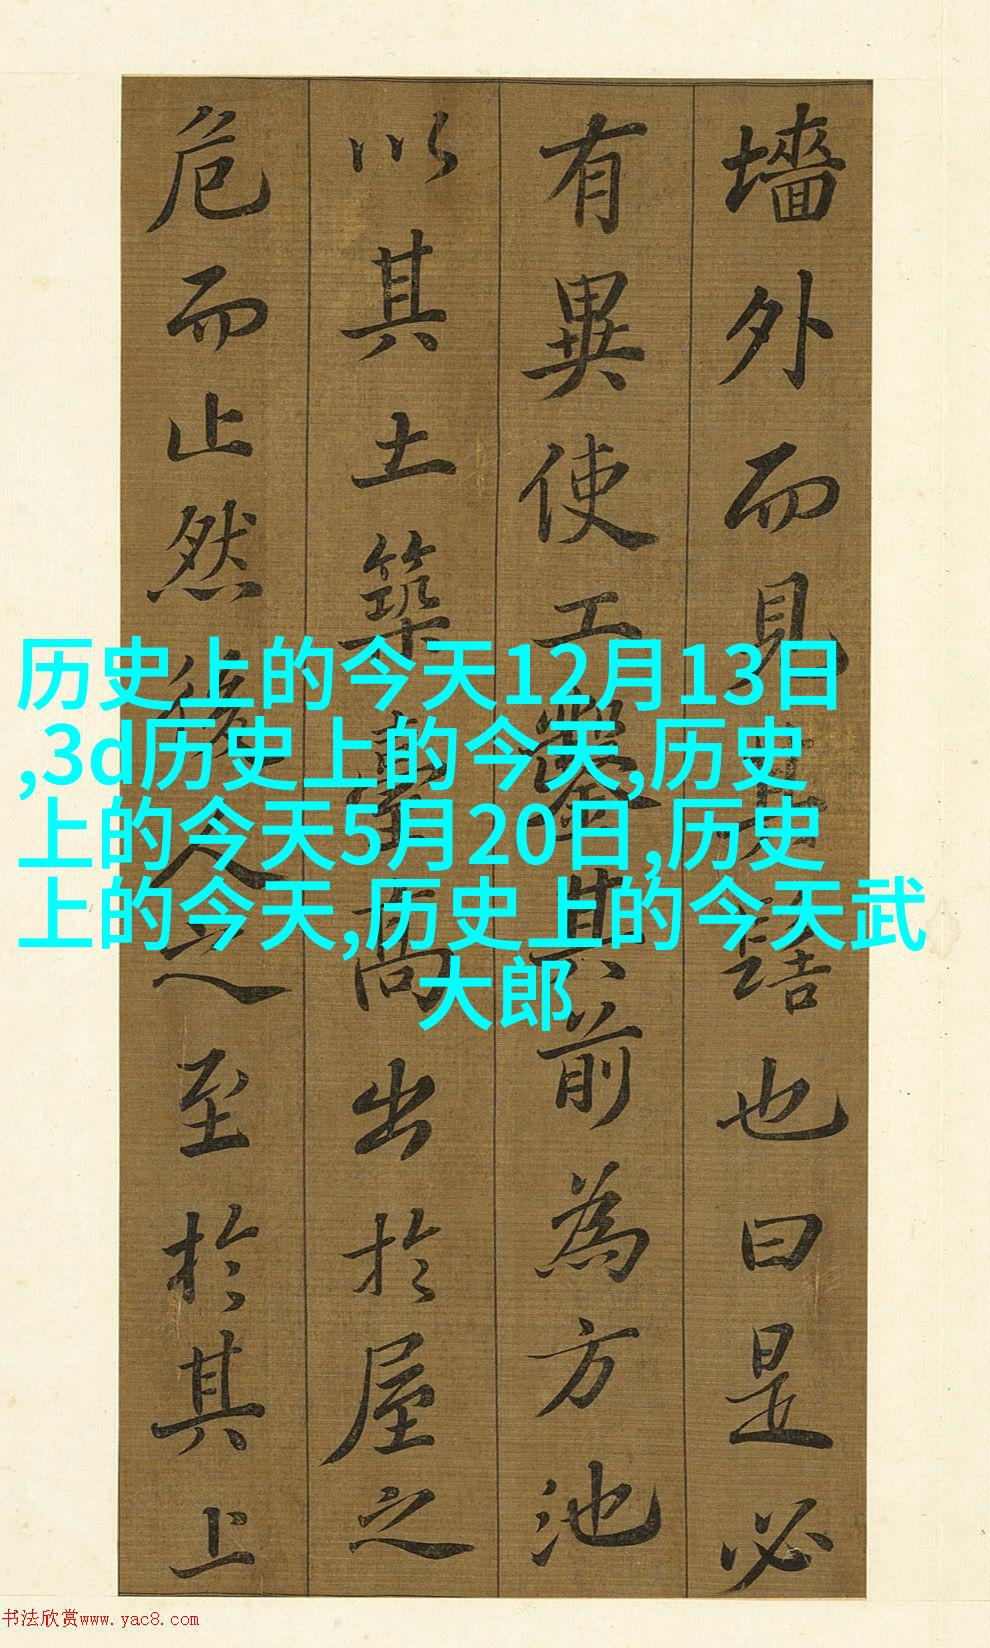 墻外而見其髻也曰是必
有異使工鑿其前為方池
以其土築臺高出於屋之
危而止然後人之至於其上
历史上的今天12月13日
,3d历史上的今天,历史
上的今天5月20日,历史
上的今天,历史上的今天武
大郎
书法欣赏www.yac8.com